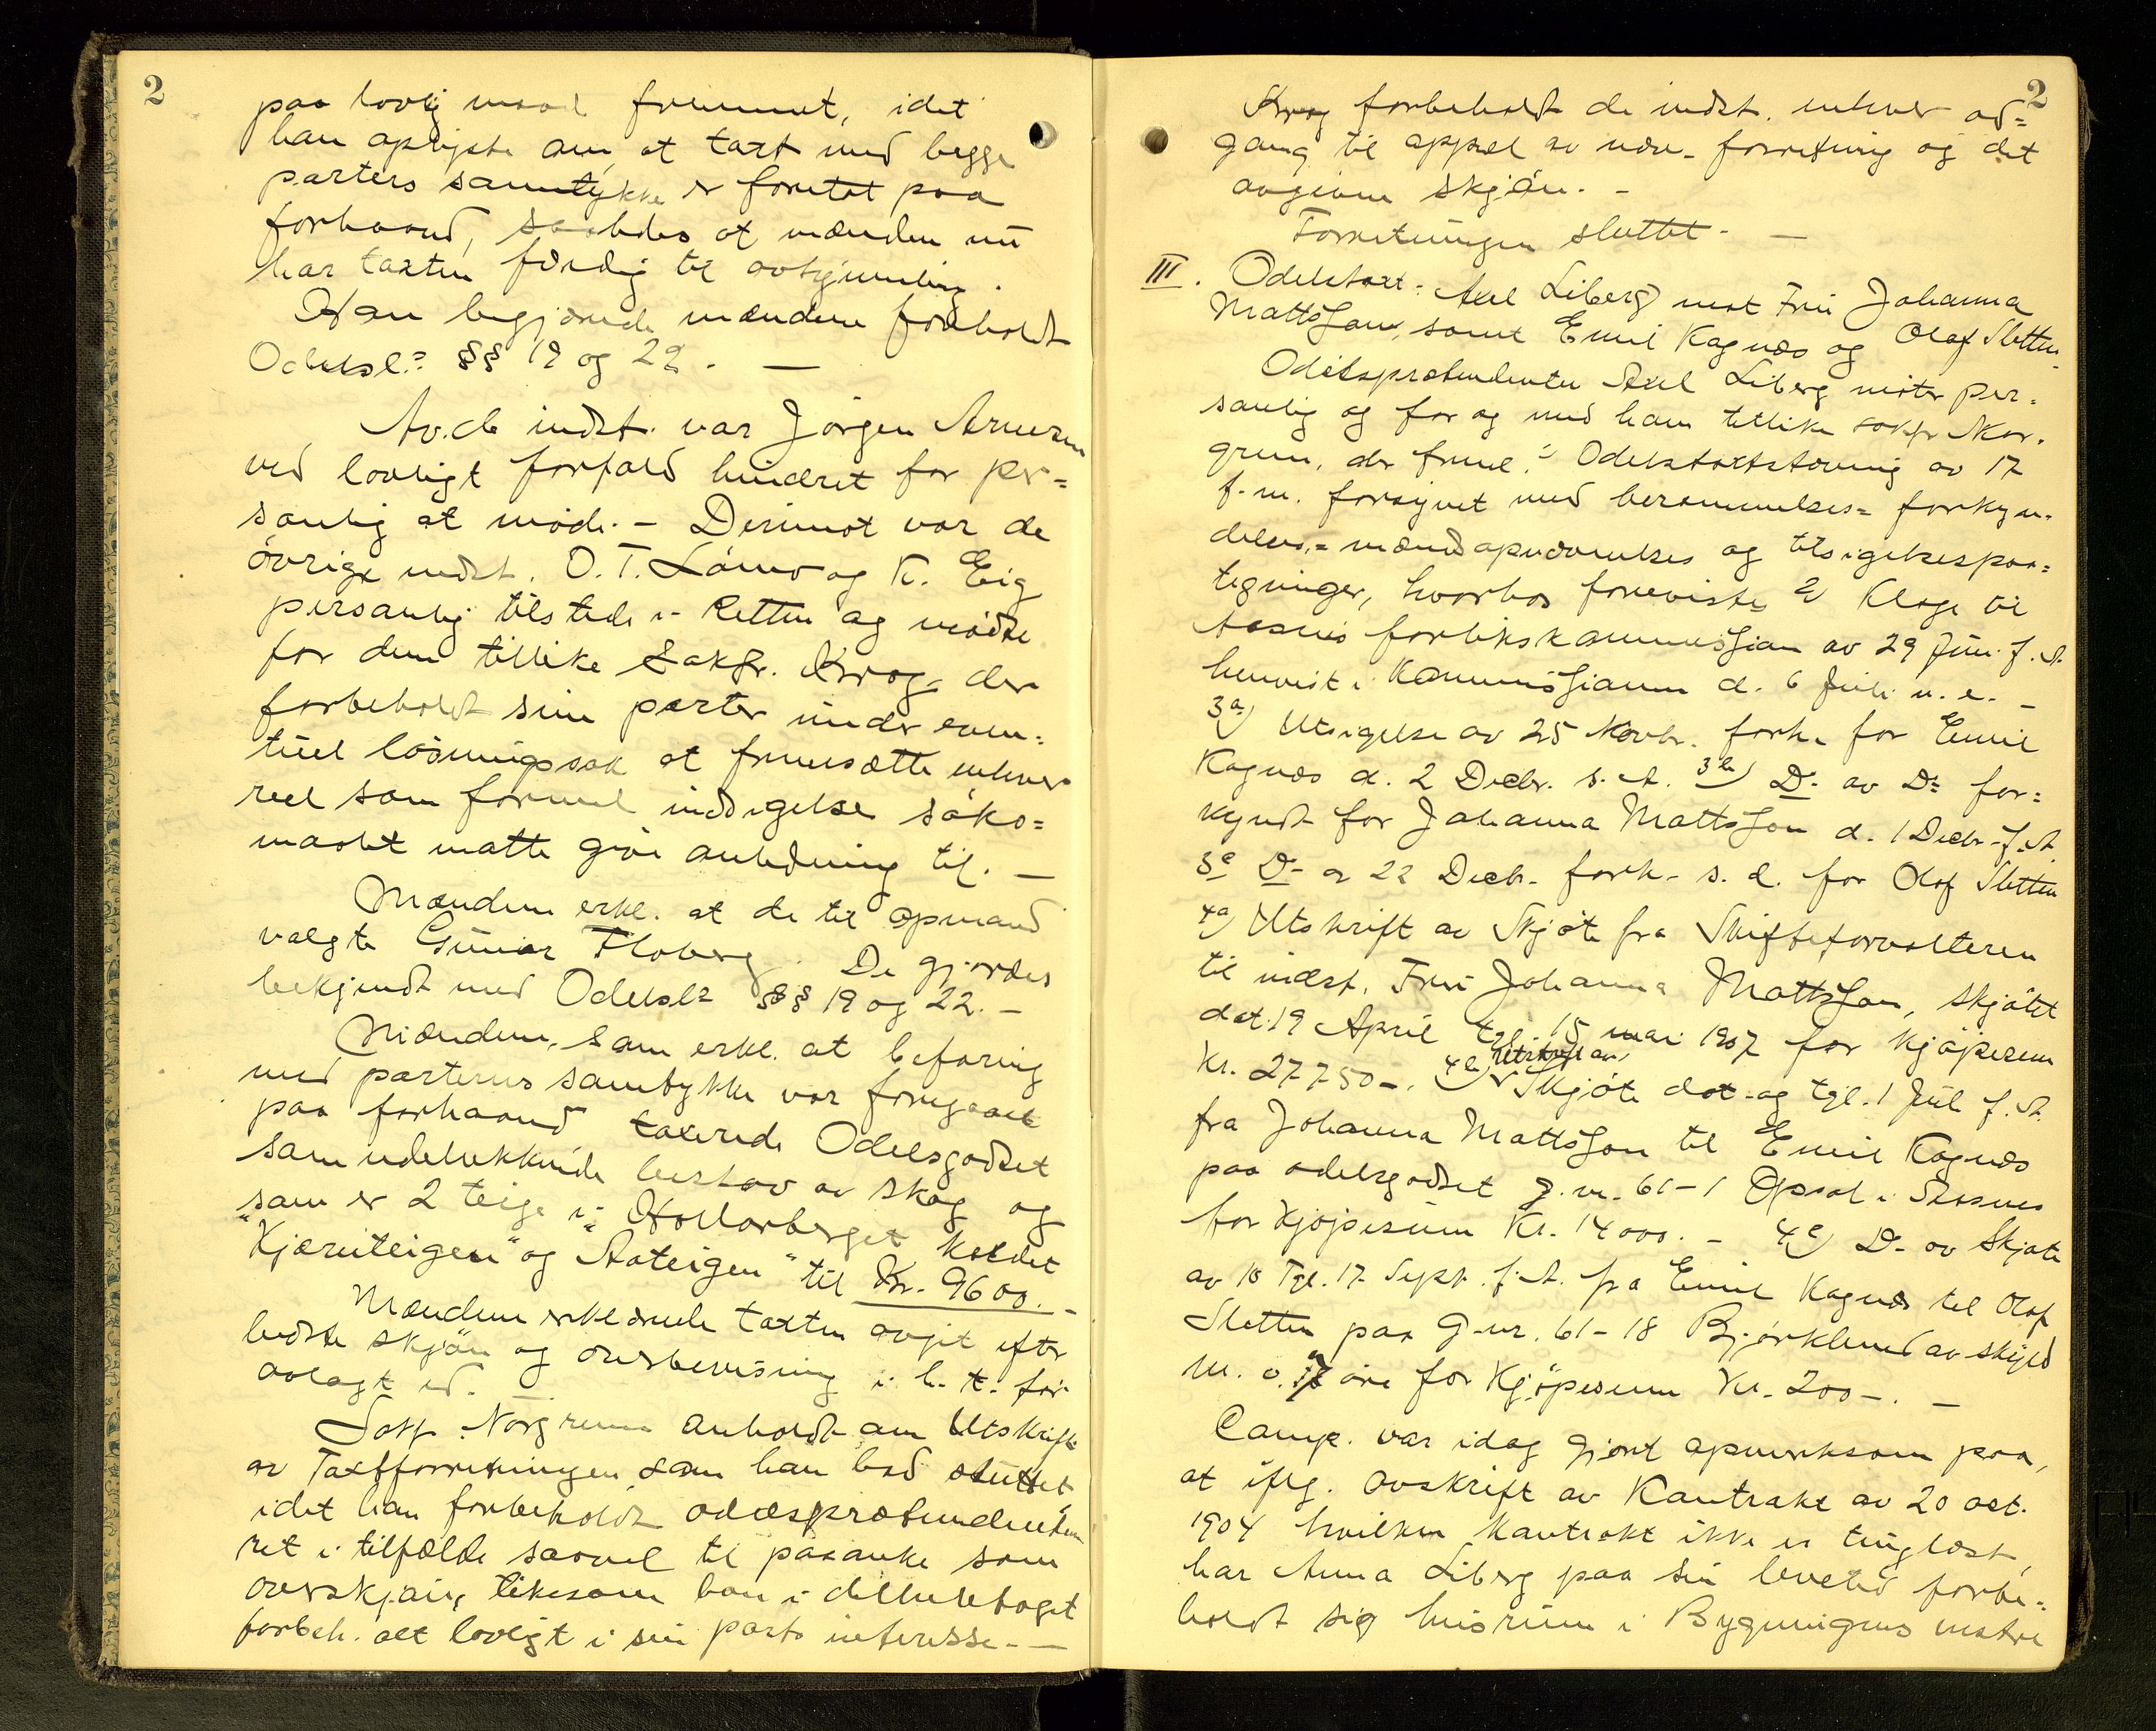 2
paa lovlig maade fremmet, idet
han oplyste om, at taxt med begge
parters samtykke er foretat paa
forhaand, saaledes at mændene nu
har taxten færdig til avhjemling.
Han begjærede mændene foreholdt
Odelsl.s §§ 19 og 22. —
Av de indst. var Jörgen Arnesen
ved lovligt forfald hindret for per=
sonlig at møde. – Derimot var de
övrige indst. O. T. Lömo og K. Eig
personlig tilstede i Retten og mødte
for dem tillike Sakfr. Krog, der
forbeholdt sine parter under even=
tuel løsningssak at fremsætte enhver
reel som formel indsigelse søks=
maalet maatte give anledning til. —
Mændene erkl. at de til opmand
valgte Gunar Floberg. De gjordes
bekjendt med Odelsl.s §§ 19 og 22. –
Mændene, som erkl. at befaring
med parternes samtykke var foregaaet
paa forhaand taxerede Odelsgodset
som udelukkende bestaar av skog og
som er 2 teige i „Hollarberget kaldet
„Kjernteigen" og Aateigen" til Kr. 9600. –
Mændene erklærede taxten avgit efter
bedste skjön og overbevisning i h. t. før
avlagt ed. —
Sakf. Norgrenn anholdt om Utskrift
av Taxtforretningen som han bad sluttet
idet han forbeholdt odelsprætendenten
ret i tilfælde saavel til paaanke som
overskjøn, likesom han i det hele taget
forbeh. alt lovligt i sin parts interesse. —
2
Krog forbeholdt de indst. enhver ad=
gang til appel av nærv. forretning og det
avgivne skjön. –
Forretningen sluttet. —
III. Odelstaxt: Axel Liberg mot Fru Johanna
Mattsson, samt Emil Kagnæs og Olaf Sletten.
Odelsprætendenten Axel Liberg möter per=
sonlig og for og med ham tillike sakfr Nor.
grenn, der freml. 1 Odelstaxtstævning av 17
f. m. forsynet med berammelses= forkyn=
delses= mændsopnævnelses og tilsigelsespaa=
tegninger, hvorhos foreviste 2) Klage til
Aasnes forlikskommission av 29 Juni f. A.
henvist i Kommissionen d. 6 Juli n. e. –
3a) Utsigelse av 25 Novbr. fork. for Emil
Kagnæs d. 2 Decbr. s. A. 3b) Do av Do for=
kyndt for Johanna Mattsson d. 1 Decbr. f. A.
3c Do av 22 Decbr. fork. s. d. for Olaf Sletten
4a) Utskrift av Skjöte fra Skifteforvalteren
til indst. Fru Johanna Mattsson, skjötet
dat. 19 April tgl. 15 mai 1907 for kjöpesum
Kr. 27750–. 4b) Utskrift av Skjöte dat. og tgl. 1 Juli f. A.
fra Johanna Mattsson til Emil Kagnæs
paa odelsgodset g. nr. 61–1 Opsal i Aasnes
for kjöpesum Kr. 14000. – 4c) Do av Skjöte
av 18 Tgl. 17 Sept. f. A. fra Emil Kagnæs til Olaf
Sletten paa G.nr. 61–18 Björklund av skyld
M. 0.17 öre for Kjöpesum Kr. 200–. —
Comp. var idag gjort opmerksom paa,
at iflg. avskrift av Kontrakt av 20 oct.
1904 hvilken kontrakt ikke er tinglæst,
har Anna Liberg paa sin levetid forbe=
holdt sig husrum i Bygningens vestre